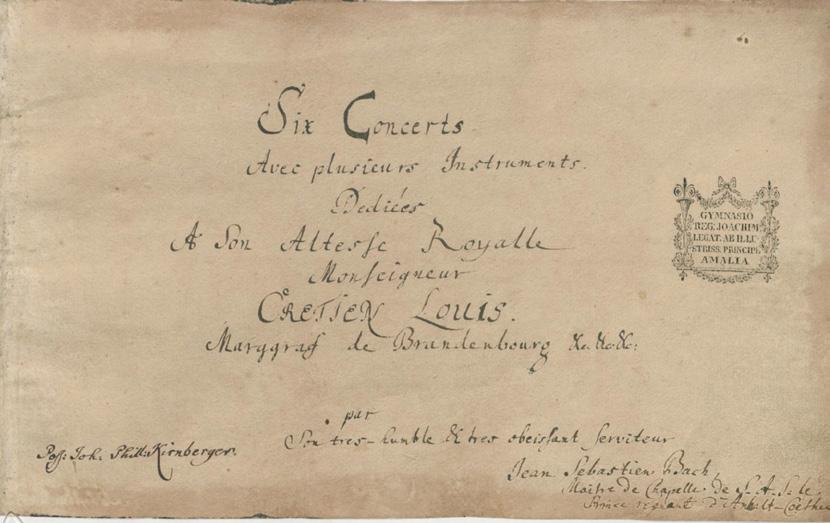 Six Concerts
Avec plusieurs Instruments.
Dediées
A Son Altesse Royalle
Monseigneur
CRETIEN Louis.
Marggraf de Brandenbourg &c &c &c:
par
Son tres-humble & tres obeissant serviteur
Jean Sebastien Bach,
Maître de Chapelle de S. A. S. le
Prince regnant d'Anhalt-Coethen
Poss: Joh. Phill: Kirnberger.
GYMNASIO
REG. JOACHIM.
LEGAT. AB ILLU
STRISS. PRINCIPE
AMALIA